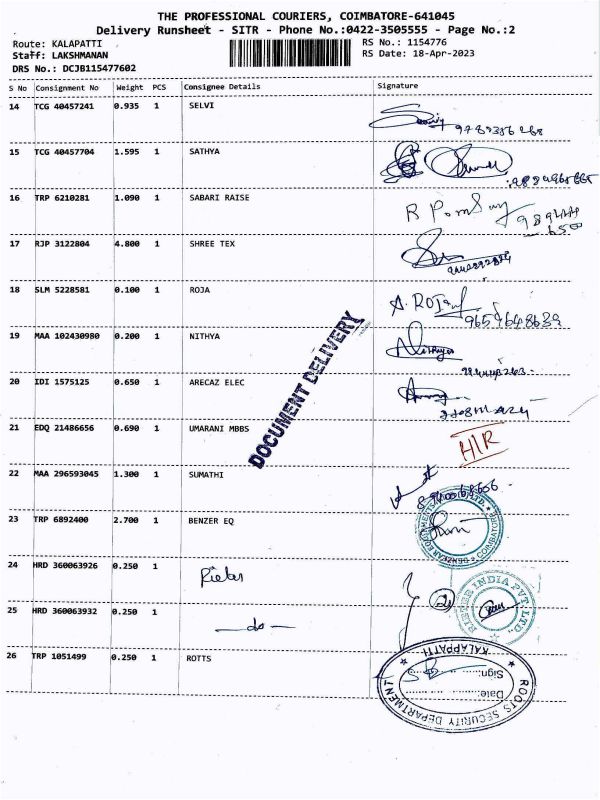 THE PROFESSIONAL COURIERS, COIMBATORE-641045
Delivery Runsheet - SITR - Phone No.:0422-3505555 - Page No.:2
Route: KALAPATTI RS No.: 1154776
Staff: LAKSHMANAN RS Date: 18-Apr-2023
DRS No.: DCJB115477602
S No Consignment No Weight PCS Consignee Details Signature
14 TCG 40457241 0.935 1 SELVI
15 TCG 40457704 1.595 1 SATHYA
16 TRP 6210281 1.090 1 SABARI RAISE
17 RJP 3122804 4.800 1 SHREE TEX
18 SLM 5228581 0.100 1 ROJA A. ROJA
9654648639
19 MAA 102430980 0.200 1 NITHYA Nithya
20 IDI 1575125 0.650 1 ARECAZ ELEC
DOCUMENT DELIVERY
21 EDQ 21486656 0.690 1 UMARANI MBBS H/R
22 MAA 296593045 1.300 1 SUMATHI
23 TRP 6892400 2.700 1 BENZER EQ
24 HRD 360063926 0.250 1 Rieter
25 HRD 360063932 0.250 1 —do— 2
RIETER INDIA PVT. LTD.
26 TRP 1051499 0.250 1 ROTTS
KALAPPATTI
Sign:
Date:
ROOTS SECURITY DEPARTMENT